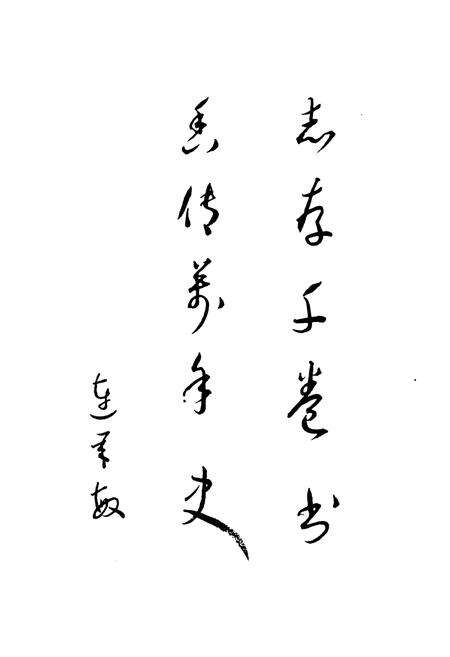 志存千卷书
香传万年史
连军敏